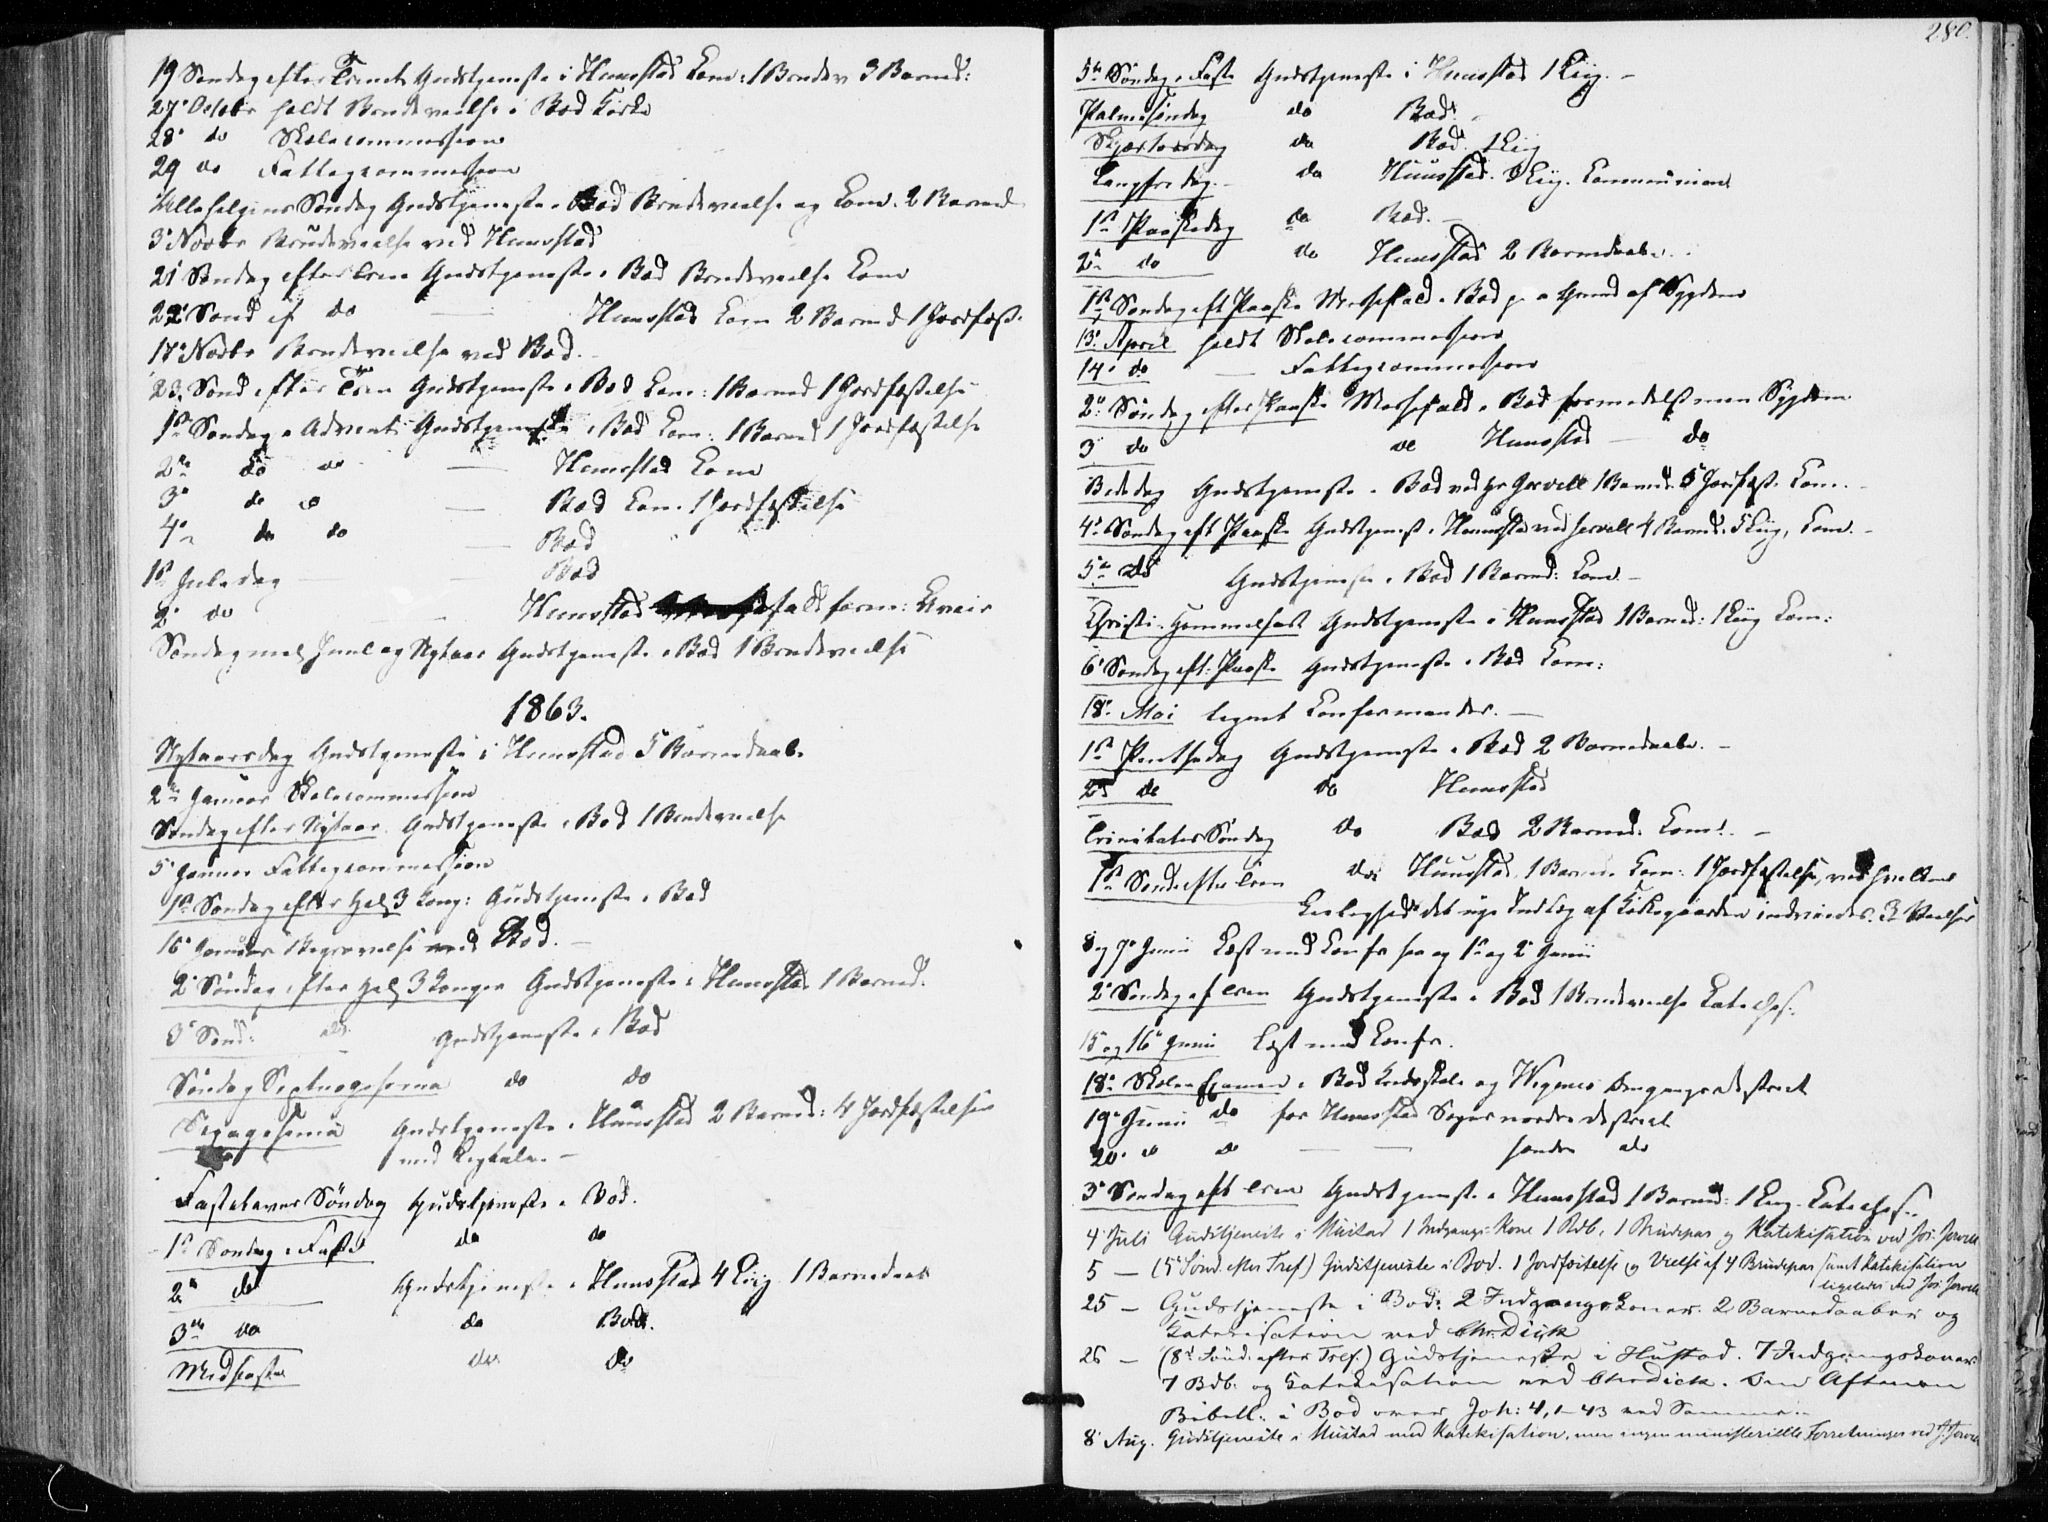 19 Søndag efter Trinit Gudstjeneste i Hunstad Com: 1 Brudev 3 Barned:
27' Octobr holdt Brudevielse i Bod Kirke
28' do Skolecommission
29 do Fattigcommission
Allehelgens Søndag Gudstjeneste i Bod Brudevielse og Com. 2 Barned
3' Novbr Brudevielse ved Hunstad
21 Søndag efter Trin Gudstjeneste i Bod Brudevielse Com
22' Sønd ef do — Hunstad Com 2 Barned 1 Jordfæst.
17' Novbr Brudevielse ved Bod.
23. Sønd efter Trin Gudstjeneste i Bod Com: 1 Barned 1 Jordfæstelse
1ste Søndag i Advent Gudstjeneste i Bod Com: 1 Barned 1 Jordfæstelse
2den do do — Hunstad Com
3' do do — Bod Com. 1 Jordfæstelse
4de do do — Bod
1ste Juledag — Bod
2' do Hunstad fald form: Uveir
Søndag mel Juul og Nytaar Gudstjeneste i Bod 1 Brudevielse
1863.
Nytaarsdag Gudstjeneste i Hunstad 5 Barnedaab
2den Januar Skolecommission
Søndag efter Nytaar Gudstjeneste i Bod 1 Brudevielse
5' Januar Fattigcommission
1ste Søndag efter Hel 3 Kong: Gudstjeneste i Bod
16' Januar Begravelse ved Bod. —
2' Søndag efter Hel 3 Konger Gudstjeneste i Hunstad 1 Barned.
3' Sønd: do Gudstjeneste i Bod
Søndag Septuagesima do do
Sexagesima Gudstjeneste i Hunstad 2 Barned: 4 Jordfæstelser
med Ligtale. —
Fastelavns Søndag Gudstjeneste i Bod.
1ste Søndag i Faste do do
2den do Gudstjeneste i Hunstad 4 Liig 1 Barnedaab
3die do do Bod.
Midfaste do do
280.
5te Søndag i Faste Gudstjeneste i Hunstad 1 Liig. —
Palmesøndag do Bod.
Skjærtorsdag do Bod. 1 Liig
Langfredag. — do Hunstad. 3 Liig. Communion
1ste Paaskedag do Bod. —
2den do do Hunstad 2 Barnedaab.
1ste Søndag eft Paaske Messefald i Bod p. a Grund af Sygdom
13. April holdt Skolecommission
14' do — Fattigcommission
2den Søndag efter Paaske Messefald i Bod formedelst min Sygdom
3' do do Hunstad — do
Bededag Gudstjeneste i Bod ved Hr Jervell 1 Barned. 5 Jordfæst. Com. —
4' Søndag eft Paaske Gudstjenest i Hunnstad ved Jervell 4 Barned. 5 Liig, Com. —
5te do Gudstjeneste i Bod 1 Barned: Com. —
Christi Himmelfart Gudstjeneste i Hunstad 1 Barned: 1 Liig Com:
6' Søndag eft: Paaske Gudstjeneste i Bod Com:
18' Mai tegnet Confirmander. —
1ste Pintsedag Gudstjeneste i Bod 2 Barnedaab. —
2' do do Hunstad
Trinitatis Søndag do Bod 2 Barned: Com: —
1ste Sønd efter Trin do Hunstad 1 Barned Com: 1 Jordfæstelse, ved hvilken
Leilighed det nye Indlæg af Kirkegaarden indviedes. 3 Vielser
8 og 9' Junii Læst med Confir saa og 1ste og 2' Junii
2' Søndag ef Trin Gudstjeneste i Bod 1 Brudevielse Catechis:
15 og 16' Junii Læst med Confir.
18' Skole Examen i Bod Kredsskole og Vignes Omgangsdistrict
19' Junii do for Hunstad Sogns nordre District
20' do do — — søndre do
3' Søndag eft Trin Gudstjeneste i Hunstad 1 Barned: 1 Liig Catechis:
4' Juli Gudstjeneste i Hustad 1 Indgangs-Kone 1 Bdb. 1 Brudepar og Katekisation ved Jos. Jervell
5 — (5' Sønd. efter Tref.) Gudstjeneste i Bod. 1 Jordfæstelse og Vielse af 4 Brudepar samt Katekisation
ligeledes ved Jos. Jervell
25 — Gudstjeneste i Bod: 2 Indgangskoner. 2 Barnedaaber og
Katekisation ved Chr. Dick
26 — (8d Sønd. efter Tref.) Gudstjeneste i Hustad. 7 Indgangskoner.
7 Bdb. og Katekisation ved Chr. Dick. Om Aftenen
Bibell. i Bod over Joh: 4, 1–43 ved Samme. —
8' Aug. Gudstjeneste i Hustad med Katekisation, men ingen ministerielle Forretninger ved J. Jervell